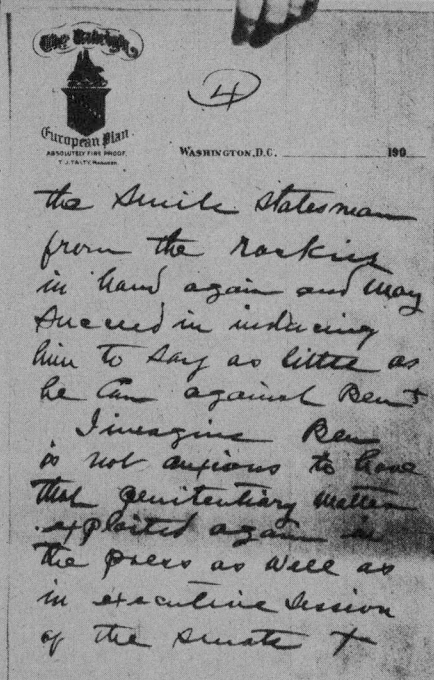 The Raleigh
4
European Plan.
ABSOLUTELY FIRE PROOF.
T. J. TALTY, MANAGER.
WASHINGTON, D.C. 190
the Senile statesman
from the rockies
in hand again and may
succeed in inducing
him to say as little as
he can against Ben +
I imagine Ben
is not anxious to have
that penitentiary matter
exploited again in
the press as well as
in executive session
of the Senate +